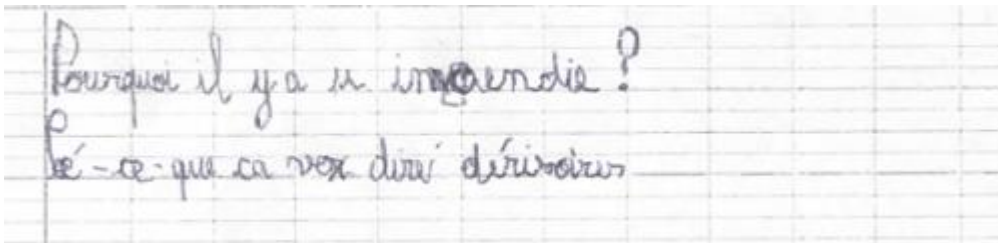 Pourquoi il y a u incendie ?
Cé-ce-que ca vex dire dérisoires